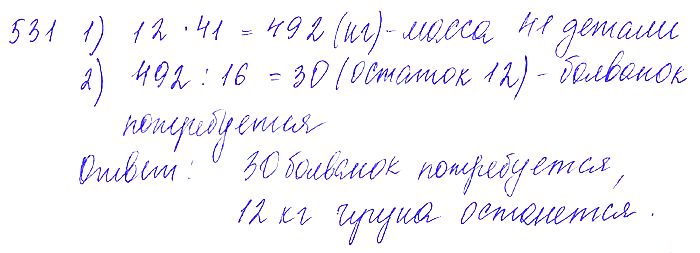 531 1) 12 · 41 = 492 (кг) - масса 41 детали
2) 492 : 16 = 30 (остаток 12) - болванок
потребуется
Ответ: 30 болванок потребуется,
12 кг останется.